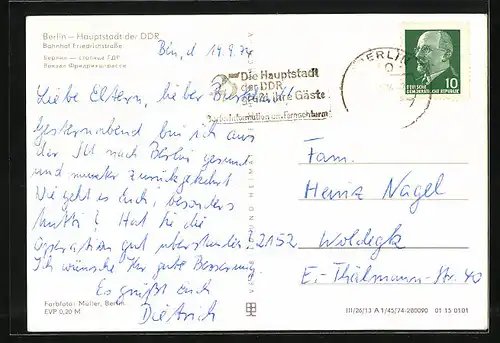 Berlin – Hauptstadt der DDR
Bahnhof Friedrichstraße
Берлин – столица ГДР
Вокзал Фридрихштрассе
Bln, d 19.9.74
Liebe Eltern, lieber
Gesternabend bin ich aus
der SU nach Berlin gesund
und munter zurückgekehrt
Wie geht es Euch, besonders
Mutti? Hat sie die
Operation gut überstanden?
Ich wünsche Ihr gute Besserung.
Es grüßt Euch
Dietrich
Farbfoto: Müller, Berlin
EVP 0,20 M
VERLAG HEIMAT
Die Hauptstadt
der DDR
grüßt ihre Gäste
Berlin-Information am Fernsehturm
BERLIN
10
DEUTSCHE
DEMOKRATISCHE REPUBLIK
Fam.
Heinz Nagel
2152 Woldegk
E.-Thälmann-Str. 40
III/26/13 A 1/45/74-280090 01 15 0101